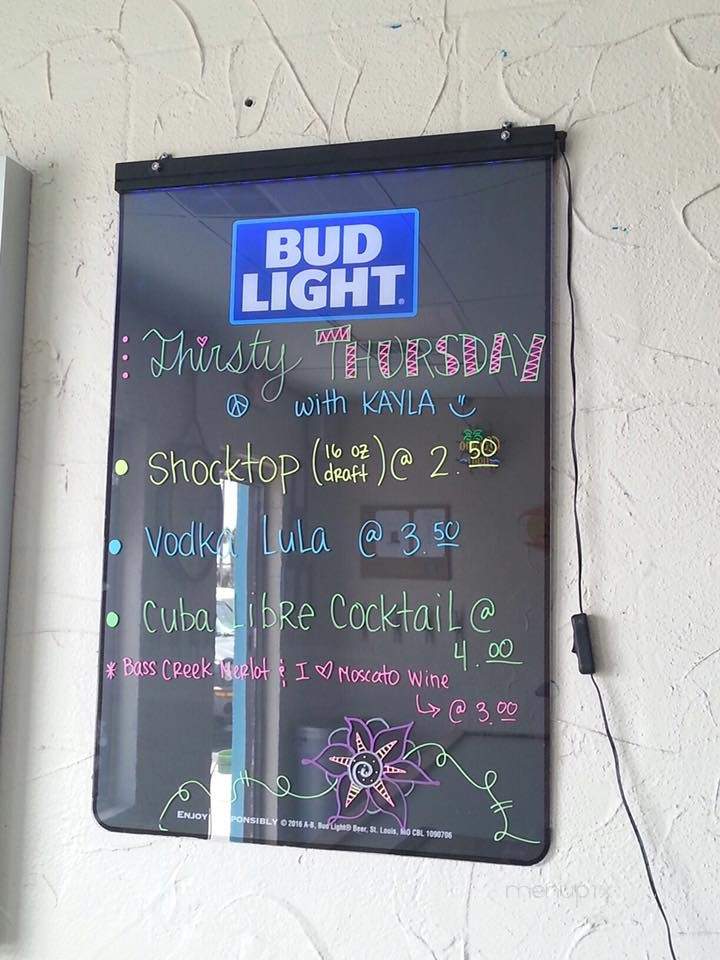 BUD
LIGHT.
Thirsty THURSDAY
with KAYLA
• Shocktop (16 oz draft) @ 2.50
• Vodka Lula @ 3.50
• Cuba Libre Cocktail @
4.00
* Bass Creek Merlot & I ♡ Moscato Wine
↳ @ 3.00
ENJOY PONSIBLY © 2016 A-B, Bud Light® Beer, St. Louis, MO CBL 1090706
menupix